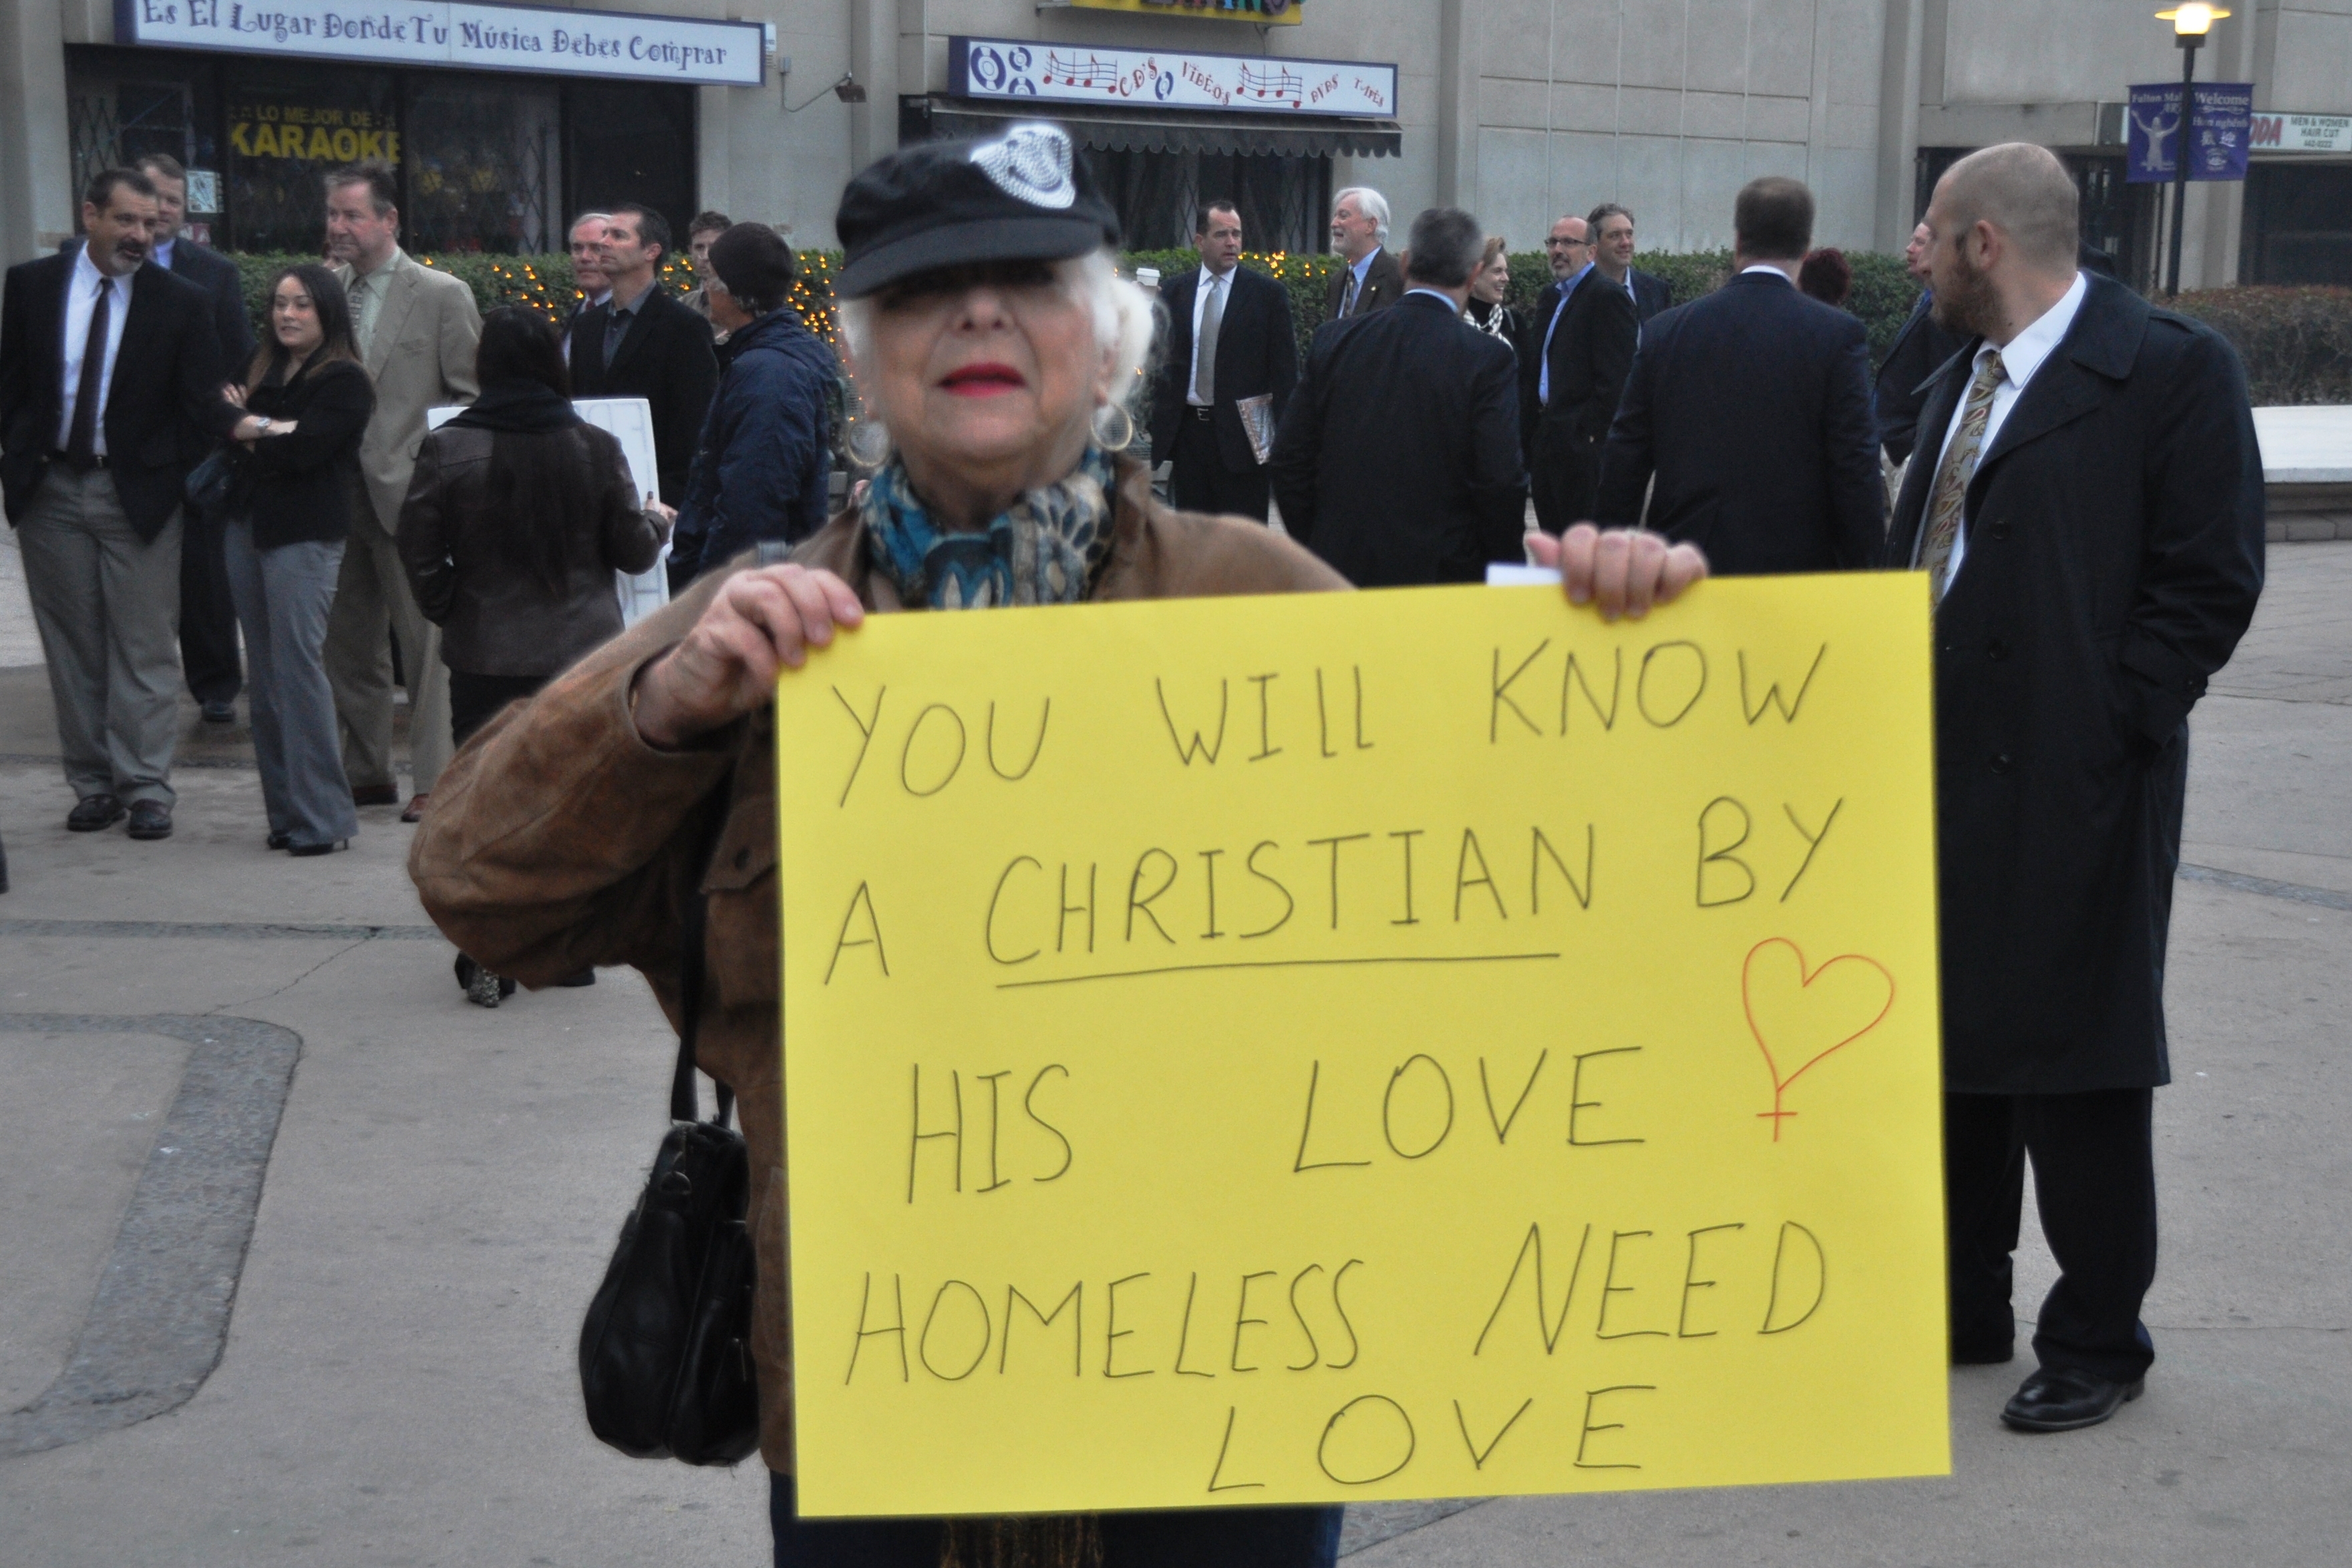 Es El Lugar Donde Tu Música Debes Comprar
LO MEJOR DE
KARAOKE
CD'S VIDEOS DVDS TAPES
Fulton Mall
Welcome
歡迎
MEN & WOMEN
HAIR CUT
YOU WILL KNOW
A CHRISTIAN BY
HIS LOVE
HOMELESS NEED
LOVE